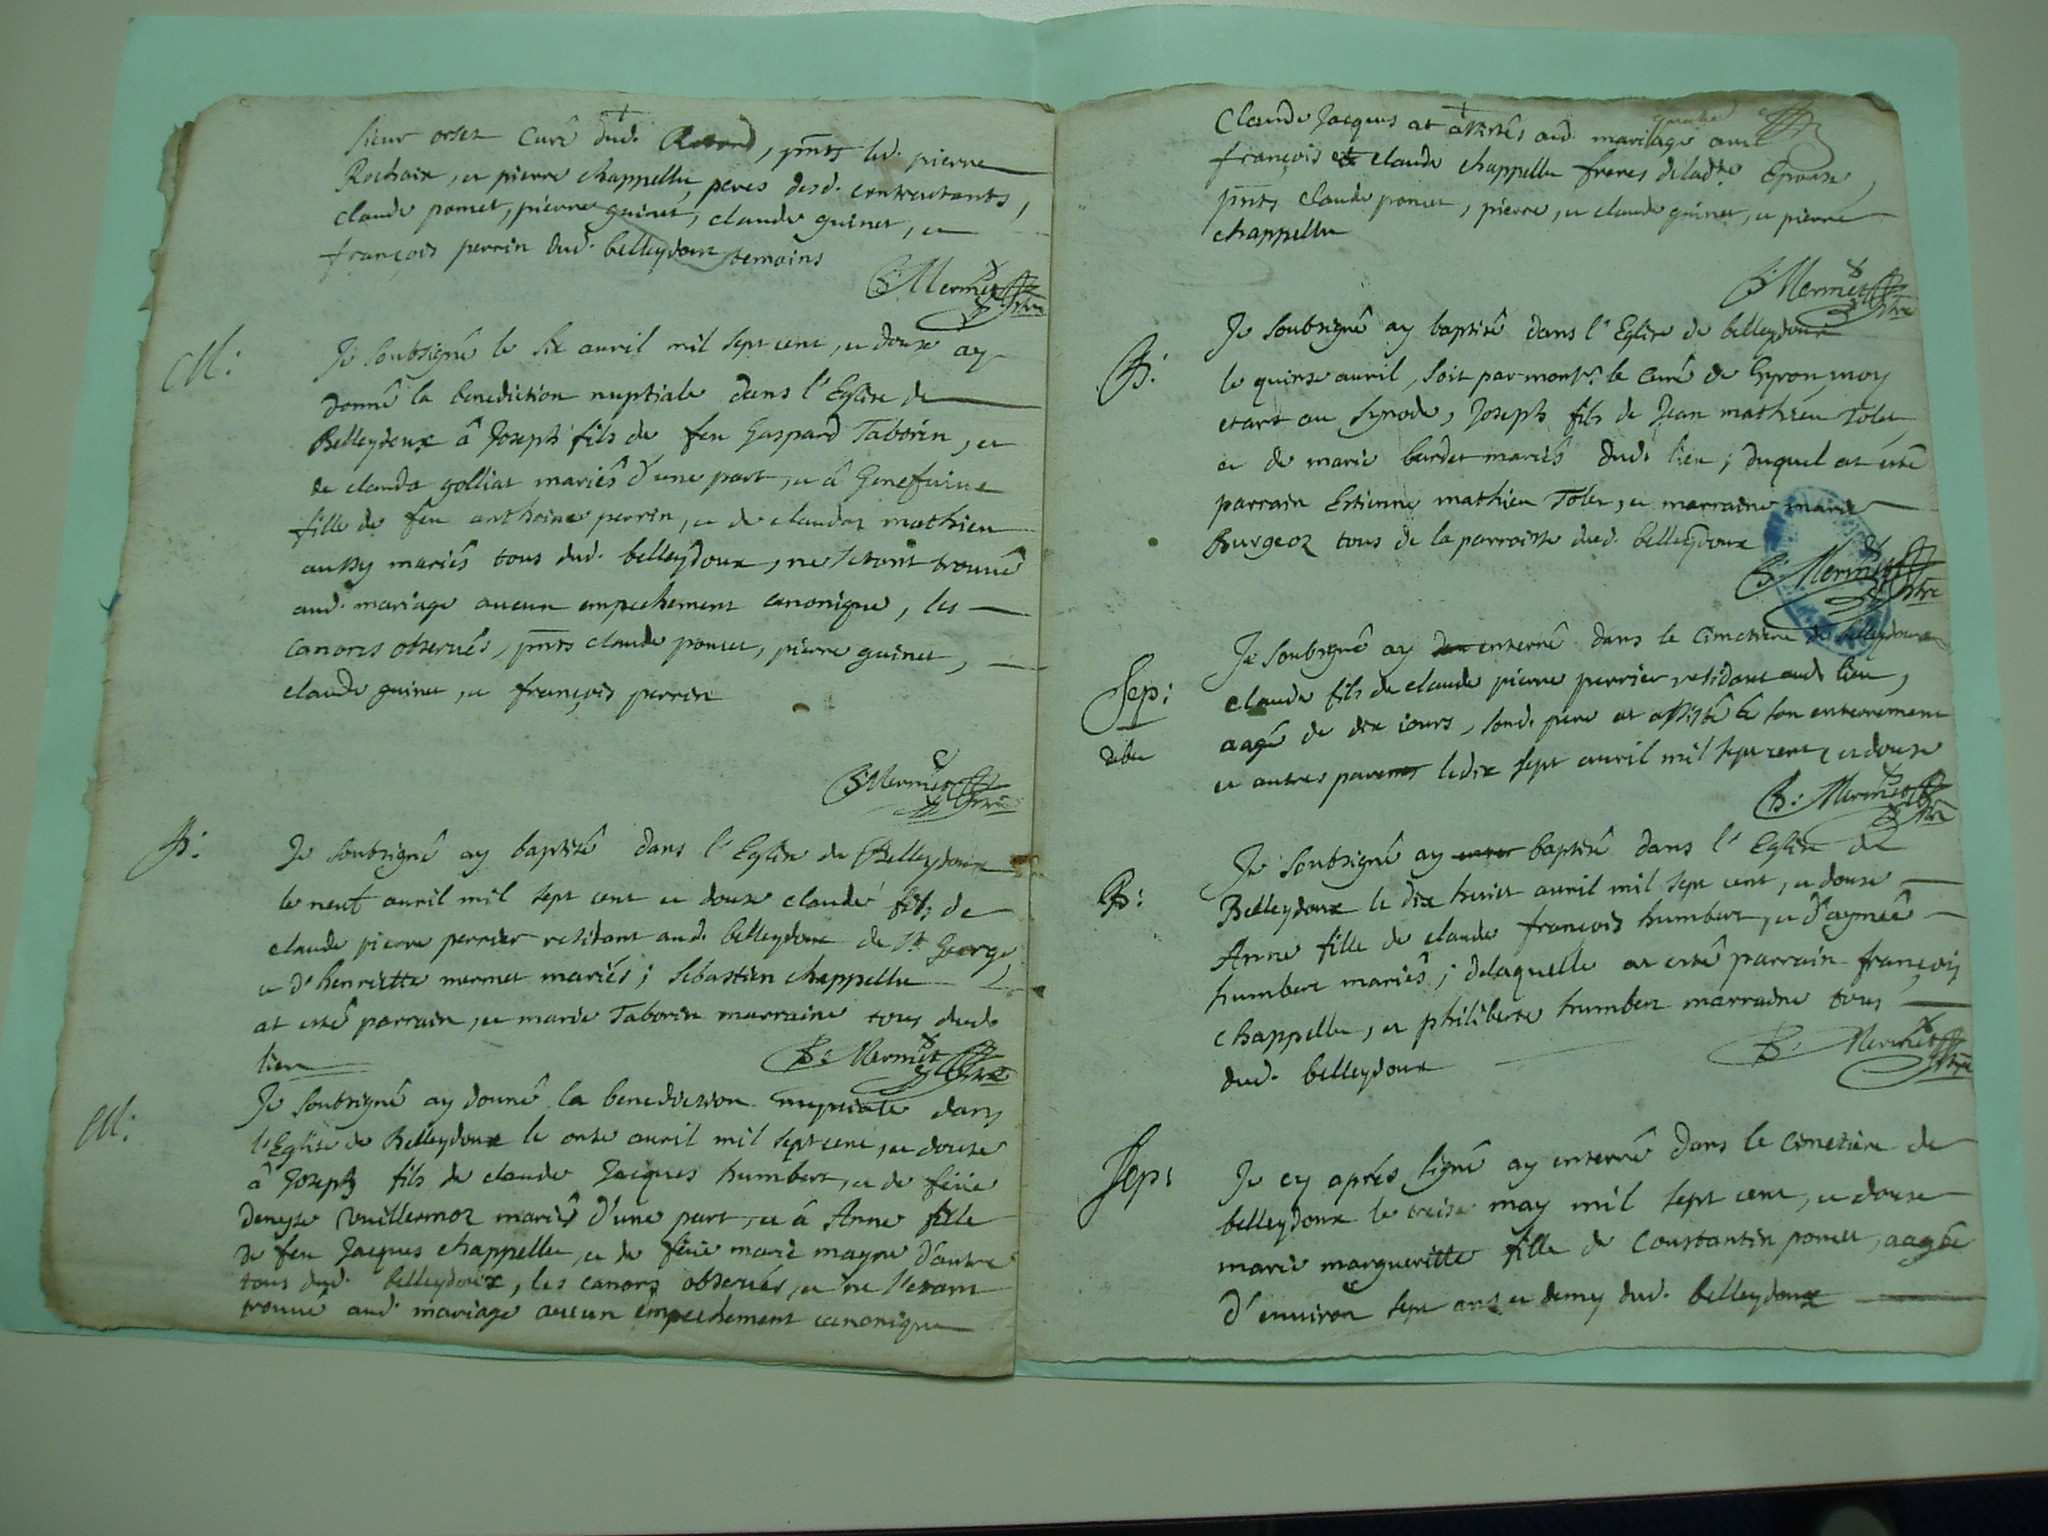 sieur orset curé dud. Retord, pnts led. pierre
Rochaix, et pierre chappellu, peres desd. contractants,
claude poncet, pierre guinet, claude guinet, et
françois perrin dud. belleydoux temoins
B: Mermet ptre
M:
Je soubsigné le six avril mil sept cent, et douze ay
donné la benediction nuptiale dans l'Eglise de
Belleydoux â Joseph fils de feu Gaspard Taborin, et
de clauda golliat mariés d'une part, et â Genefuieue
fille de feu anthoine perrin, et de claudaz mathieu
aussy mariés tous dud. belleydoux, ne s'etant trouué
aud. mariage aucun empechement canonique, les
canons obserués, pnts claude poncet, pierre guinet,
claude guinet, et françois perrin
B: Mermet ptre
B:
Je soubsigné ay baptisé dans l'Eglise de Belleydoux
le neuf avril mil sept cent et douze claude fils de
claude pierre perrier residant aud. belleydoux de St George,
et d'henriette mermet mariés; sebastien chappellu
at esté parrain, et marie Taborin marraine tous dud.
lieu
B: Mermet ptre
M:
Je soubsigné ay donné la benediction nuptiale dans
l'Eglise de Belleydoux le onze avril mil sept cent, et douze
â Joseph fils de claude Jacques humbert, et de feüe
denyse Vuillermoz mariés d'une part, et â Anne fille
de feu Jacques chappellu, et de feüe marie mayne d'autre
tous dud. belleydoux, les canons obserués, et ne s'etant
trouué aud. mariage aucun empechement canonique
Claude Jacques at assistés aud. mariage avec
françois et claude chappellu freres de ladte Epouse,
pnts claude poncet, pierre, et claude guinet, et pierre
chappellu
B: Mermet ptre
B:
Je soubsigné ay baptisé dans l'Eglise de belleydoux
le quinze avril, soit par monsr. le curé de Gyron, moy
etant au synode, Joseph fils de Jean mathieu Tolet,
et de marie burdet mariés dud. lieu; duquel at esté
parrain Estienne mathieu Tolet, et marraine marie
Burgeoz tous de la parroisse dud. belleydoux
B: Mermet ptre
Sep:
Je soubsigné ay enterré dans le cimetiere de belleydoux
claude fils de claude pierre perrier residant aud. lieu,
aagé de dix iours, sond. pere at assisté â son enterrement
et autres parents le dix sept avril mil sept cent, et douze
B: Mermet ptre
B:
Je soubsigné ay baptisé dans l'Eglise de
Belleydoux le dix huict avril mil sept cent, et douze
Anne fille de claude françois humbert, et d'aymée
humbert mariés; delaquelle at esté parrain françois
chappellu, et philiberte humbert marraine tous
dud. belleydoux
B: Mermet ptre
Sep:
Je cy aprés signé ay enterré dans le cimetiere de
belleydoux le treize may mil sept cent, et douze
marie margueritte fille de Constantin poncet, aagée
d'enuiron sept ans et demy dud. belleydoux